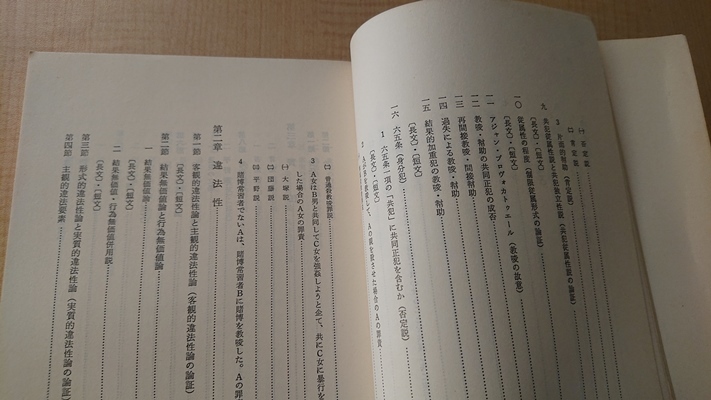 ㈡ 否定説
3 片面的幇助（肯定説）
九 共犯従属性説と共犯独立性説（共犯従属性説の論証）
〔長文〕・〔短文〕
一〇 従属性の程度（制限従属形式の論証）
〔長文〕・〔短文〕
一一 アジャン・プロヴォカトゥェール（教唆の故意）
一二 教唆・幇助の共同正犯の成否
一三 再間接教唆・間接幇助
一四 過失による教唆・幇助
一五 結果的加重犯の教唆・幇助
〔長文〕・〔短文〕
一六 六五条（身分犯）
1 六五条一項の「共犯」に共同正犯を含むか（否定説）
〔長文〕・〔短文〕
Aの罪責
㈡ 普通殺教唆罪説
3 A女はB男と共同してC女を強姦しようと企て、共にC女に暴行を
した場合のA女の罪責
㈠ 大塚説
㈡ 団藤説
㈢ 平野説
4 賭博常習者でないAは、賭博常習者Bに賭博を教唆した。Aの罪
第二章 違法性
第一節 客観的違法性論と主観的違法性論（客観的違法性論の論証）
〔長文〕・〔短文〕
第二節 結果無価値論と行為無価値論
一 結果無価値論
〔長文〕・〔短文〕
二 結果無価値・行為無価値併用説
〔長文〕・〔短文〕
第三節 形式的違法性論と実質的違法性論（実質的違法性論の論証）
第四節 主観的違法要素